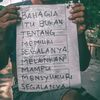 BAHAGIA
ITU BUKAN
TENTANG
MEMILIKI
SEGALANYA
MELAINKAN
MAMPU
MENSYUKURI
SEGALANYA